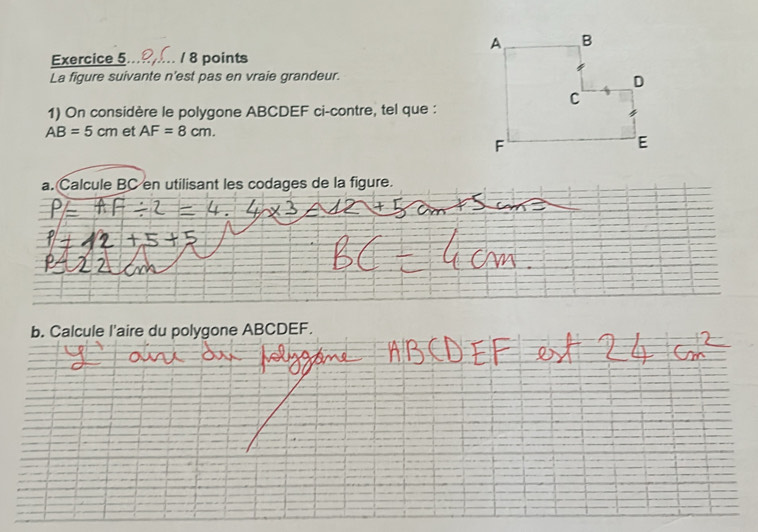 Exercice 5....0,5... / 8 points
La figure suivante n'est pas en vraie grandeur.
1) On considère le polygone ABCDEF ci-contre, tel que :
AB = 5 cm et AF = 8 cm.
A
B
C
D
F
E
a. Calcule BC en utilisant les codages de la figure.
P= AF ÷ 2 = 4. 4×3 = 12 + 5 cm + 5 cm =
P = 12 + 5 + 5
P= 22 cm
BC = 4 cm.
b. Calcule l'aire du polygone ABCDEF.
L' aire du polygone ABCDEF est 24 cm²